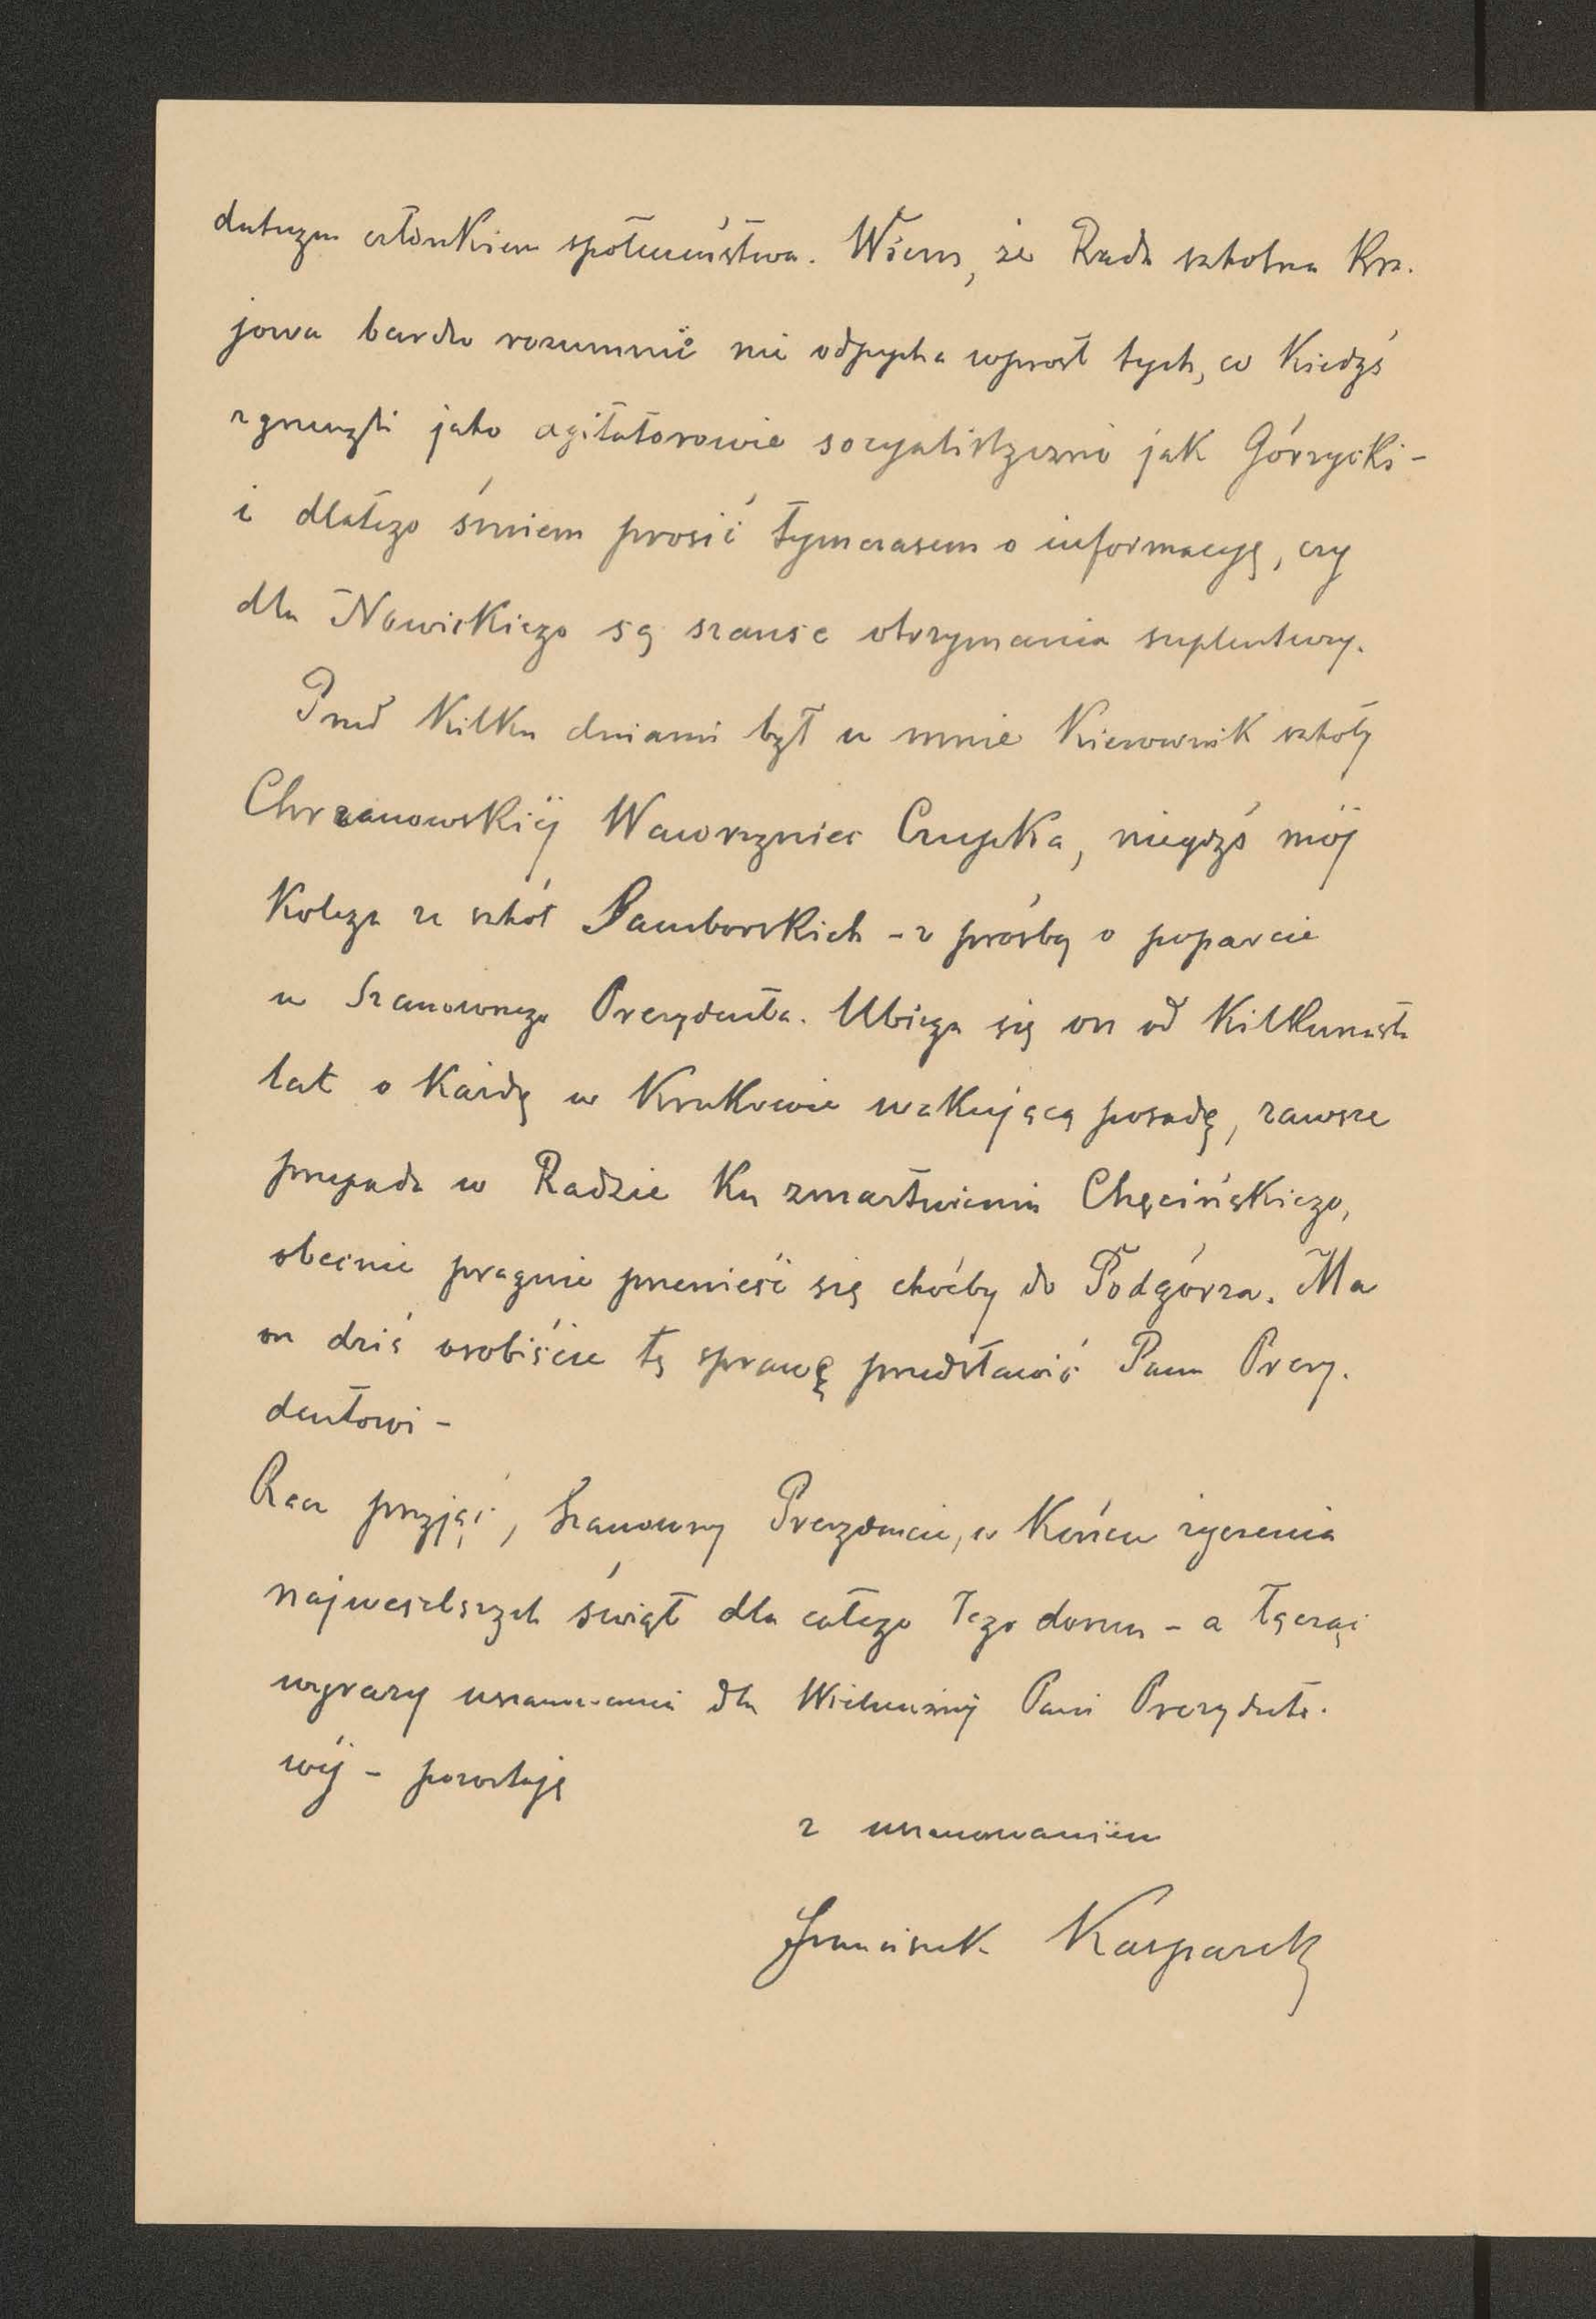 datnym członkiem społeczeństwa. Wiem, że Rada szkolna Kra-
jowa bardzo rozumnie nie odpycha wprost tych, co kiedyś
zgrzeszyli jako agitatorowie socyalistyczni jak Górzycki -
i dlatego śmiem prosić tymczasem o informacyę, czy
dla Nowickiego są szanse otrzymania suplentury.
Przed kilku dniami był u mnie Kierownik szkoły
Chrzanowskiéj Wawrzyniec Czupka, niegdyś mój
Kolega ze szkół Samborskich - z prośbą o poparcie
u Szanownego Prezydenta. Ubiega się on od kilkunastu
lat o każdą w Krakowie wakującą posadę, zawsze
przepada w Radzie ku zmartwieniu Chęcińskiego,
obecnie pragnie przenieść się choćby do Podgórza. Ma
on dziś osobiście tę sprawę przedstawić Panu Prezy-
dentowi -
Racz przyjąć, Szanowny Prezydencie, w końcu życzenia
najweselszych świąt dla całego Jego domu - a łącząc
wyrazy uszanowania dla Wielmożnéj Pani Prezydento-
wéj - pozostaję
z uszanowaniem
Franciszek Kasparek